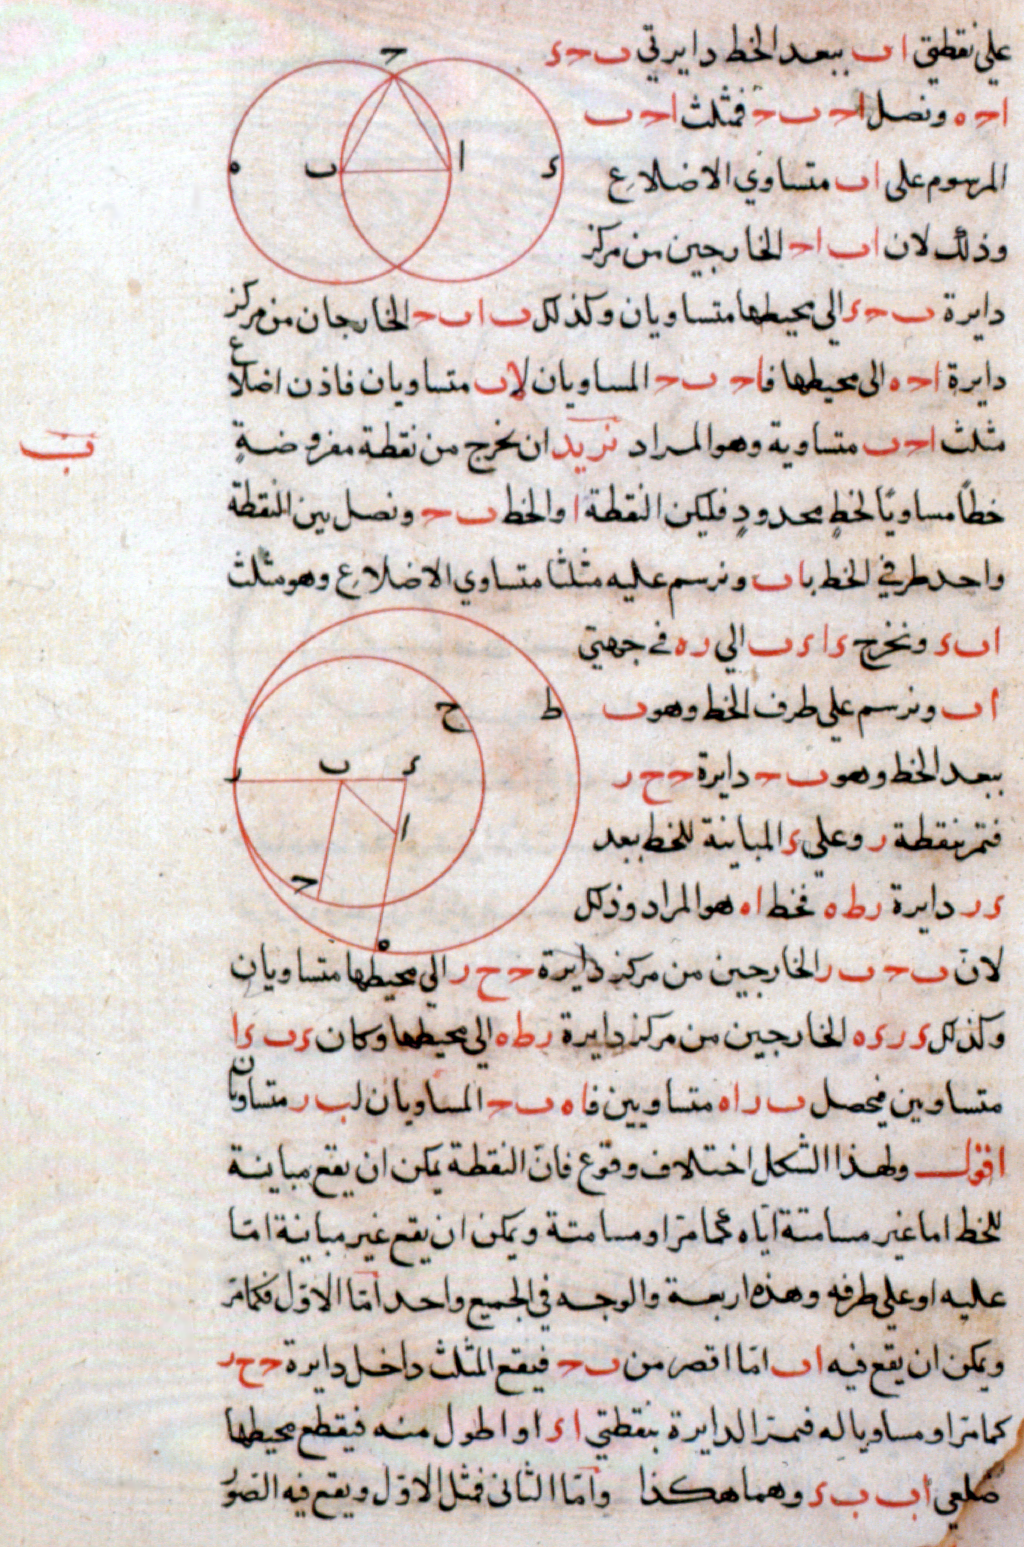 علي نقطتي اب ببعد الخط دايرتي ب ح د
ا ح ه ونصل ا ح ب ح فمثلث ا ح ب
المرسوم على اب متساوي الاضلاع
وذلك لان اب ا ح الخارجين من مركز
دايرة ب ح د الى محيطها متساويان وكذلك ب ا ب ح الخارجان من مركز
دايرة ا ح ه الى محيطها فا ح ب ح المساويان لاب متساويان فاذن اضلاع
مثلث ا ح ب متساوية وهو المراد نريد ان نخرج من نقطة مفروضةٍ
ب
خطًا مساويًا لخطٍ محدودٍ فليكن النقطة ا والخط ب ح ونصل بين النقطة
واحد طرفي الخط باب ونرسم عليه مثلثا متساوي الاضلاع وهو مثلث
اب د ونخرج د ا د ب الي ر ه في جهتي
اب ونرسم علي طرف الخط وهو ب
ببعد الخط وهو ب ح دايرة ح ح ر
فتمر بنقطة ر وعلي د المباينة للخط ببعد
د ر دايرة ر ط ه فخط ا ه هو المراد وذلك
لانّ ب ح ب ر الخارجين من مركز دايرة ح ح ر الي محيطها متساويان
وكذلك د ر د ه الخارجين من مركز دايرة ر ط ه الي محيطها وكان د ب د ا
متساويين فيحصل ب ر ا ه متساويين فا ه ب ح المساويان لب ر متساويان
اقول ولهذا الشكل اختلاف وقوع فانّ النقطة يمكن ان يقع مباينة
للخط اما غير مسامتة اياه كما مرّ او مسامتة ويمكن ان يقع غير مباينة امّا
عليه او علي طرفه وهذه اربعة والوجه في الجميع واحد امّا الاوّل فكما مرّ
ويمكن ان يقع فيه اب امّا اقصر من ب ح فيقع المثلث داخل دايرة ح ح ر
كما مرّ او مساويا له فيمرّ الدايرة بنقطتي ا د او اطول منه فيقطع محيطها
ضلعي اب ب د وهما هكذا وامّا الثاني فمثل الاوّل ويقع فيه الصوَر
ح
ه ب ا د
ح ط
ر ب د
ا
ح
ه